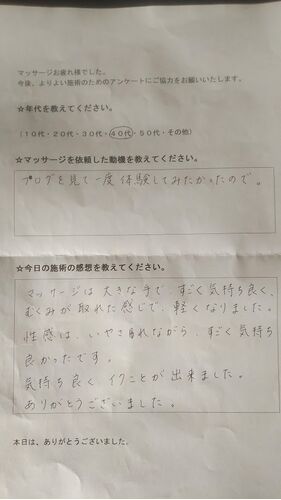 マッサージお疲れ様でした。
今後、よりよい施術のためのアンケートにご協力をお願いいたします。
☆年代を教えてください。
（10代・20代・30代・40代・50代・その他）
☆マッサージを依頼した動機を教えてください。
ブログを見て一度体験してみたかったので。
☆今日の施術の感想を教えてください。
マッサージは大きな手で、すごく気持ち良く、
むくみが取れた感じで、軽くなりました。
性感は、いやされながら、すごく気持ち
良かったです。
気持ち良く、イクことが出来ました。
ありがとうございました。
本日は、ありがとうございました。